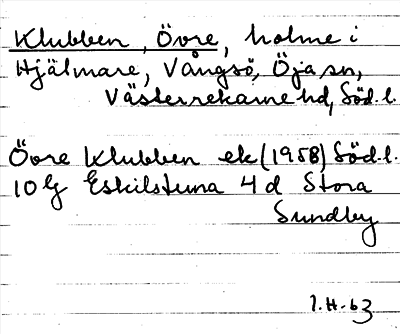 Klubben, Övre, holme i
Hjälmare, Vångsö, Öja sn,
Västerrekarne hd, Söd.l.
Övre Klubben ek (1958) Söd.l.
10 G Eskilstuna 4 d Stora
Sundby
I.H-63